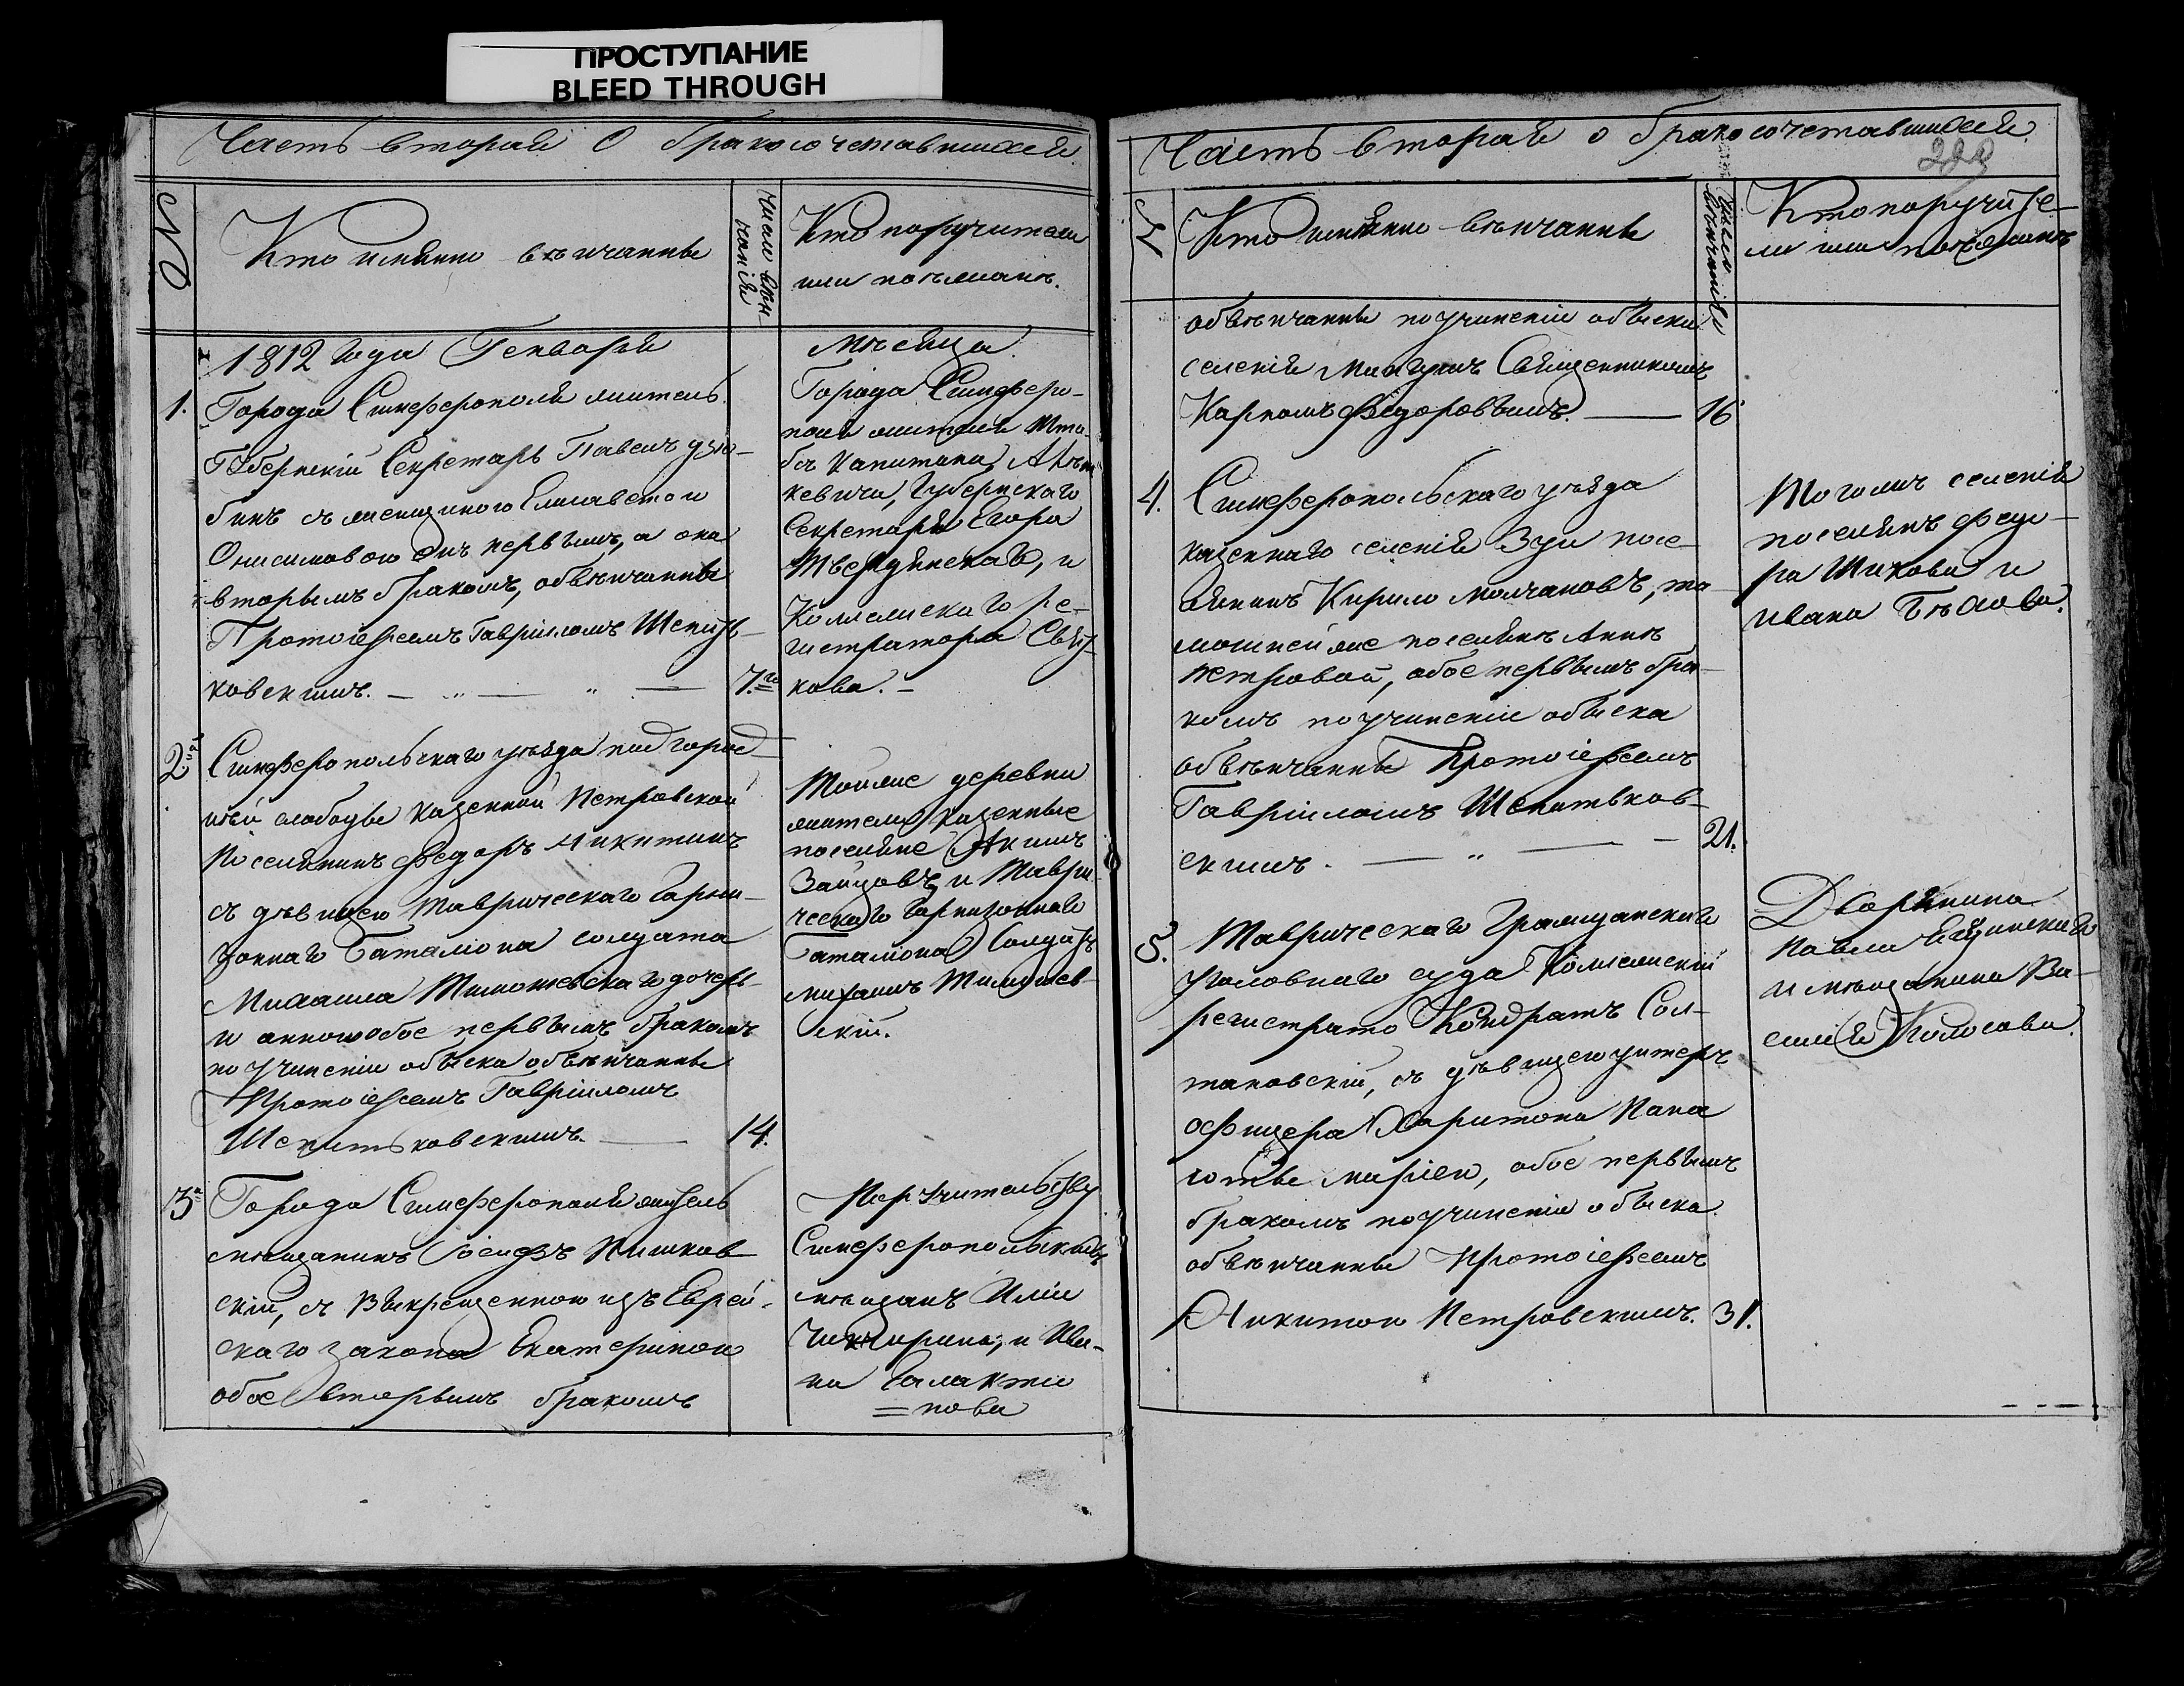 ПРОСТУПАНИЕ
BLEED THROUGH
Часть вторая О бракосочетавшихся
№
Кто имянно венчанны
Число вен-
чанiя
Кто поручители
или поезжанѣ.
1812 года Генваря
мѣсяца.
1. Города Симферополя житель
Губернскiй Секретарь Павелъ Дзю-
бинъ съ женщиною Елисаветою
Онисимовою онъ первымъ, а она
вторымъ бракомъ, обвѣнчанны
Протоiереемъ Гаврiиломъ Шепить-
ковскимъ. 7.го
Города Симферо-
поля жителя Шта-
бсъ Капитана
кевича, Губернскаго
Секретаря Егора
и
Колежскаго ре-
гистратора Свят-
кова.
2. Симферопольскаго уѣзда подгород-
нѣй слободы казенной Петровской
Поселянинъ Федоръ Никитинъ
съ дѣвицею Таврическаго Гарни-
зоннаго Баталiона солдата
Михаила Тимошевскаго дочерь-
ю анною обое первымъ бракомъ
по учиненiи обыска обвѣнчанны
Протоiереемъ Гаврiиломъ
Шепитьковскимъ. 14.
Тойже деревни
жители казенные
поселяне Акимъ
Зайцовъ, и Таври-
ческаго Гарнизоннаго
Баталiона Солдатъ
михаилъ Тимошев-
скiй.
3. Города Симферополя житель
мѣщанинъ Iосифъ Пишков-
скiй, съ выкрещенною изъ Еврей-
скаго закона Екатериною
обое вторымъ бракомъ
Поручительству
Симферопольскихъ
мѣщанъ Илiи
Чигирина, и Ива-
на Галактiо
=нова
Часть вторая о бракосочетавшихся.
№
Кто имянно венчанны
Число
венчанiя
Кто поручите-
ли или поезжанѣ
обвѣнчанны по учиненiи обыска
селенiя Мангушъ Священникомъ
Карпомъ Федоровымъ. 16
4. Симферопольскаго уѣзда
казеннаго селенiя Зуи посе-
лянинъ Кирило Молчановъ, та-
мошней же поселянкѣ Аннѣ
петровой, обое первымъ бра-
комъ по учиненiи обыска
обвѣнчанны Протоiереемъ
Гаврiиломъ Шепитьков-
скимъ. 21.
Тогожъ селенiя
поселянъ Федо-
ра Шихова и
ивана Бѣлова.
5. Таврическаго Гражданскаго
уголовнаго суда Колежскiй
регистрато Кондратъ Сол-
тановскiй, съ дѣвицею унтеръ
офицера Харитона Пана
готы марiею, обое первымъ
бракомъ по учиненiи обыска
обвѣнчанны протоiереемъ
Никитою Петровскимъ. 31.
Дворянина
Павла
и мѣщанина Ва-
силiя Колосова.